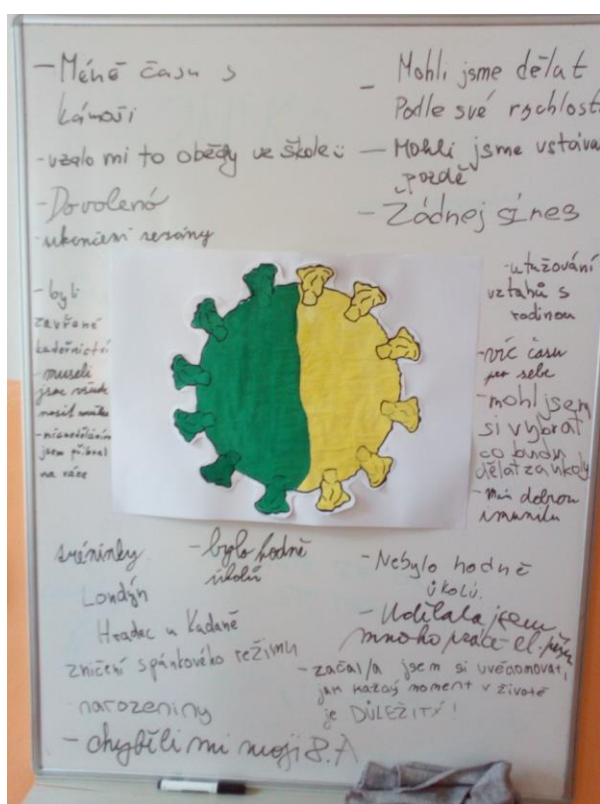 - Méně času s
kámoši
- vzalo mi to obědy ve škole
- Dovolená
- ukončení sezóny
- byli
zavřené
kadeřnictví
- museli
jsme všude
nosit
jsem přibral
na váze
tréninky
- bylo hodně
úkolů
Londýn
Hradec u Kadaně
zničení spánkového režimu
narozeniny
- chyběli mi moji 8.A
- Mohli jsme dělat
Podle své rychlost
- Mohli jsme vstáva
pozdě
- Žádnej stres
- utužování
vztahů s
rodinou
- víc času
pro sebe
- mohl jsem
si vybrat
co budu
dělat za úkoly
- mám dobrou
imunitu
- Nebylo hodně
úkolů.
- Udělala jsem
mnoho práce
- začal/a jsem si uvědomovat,
jak každý moment v životě
je DŮLEŽITÝ!